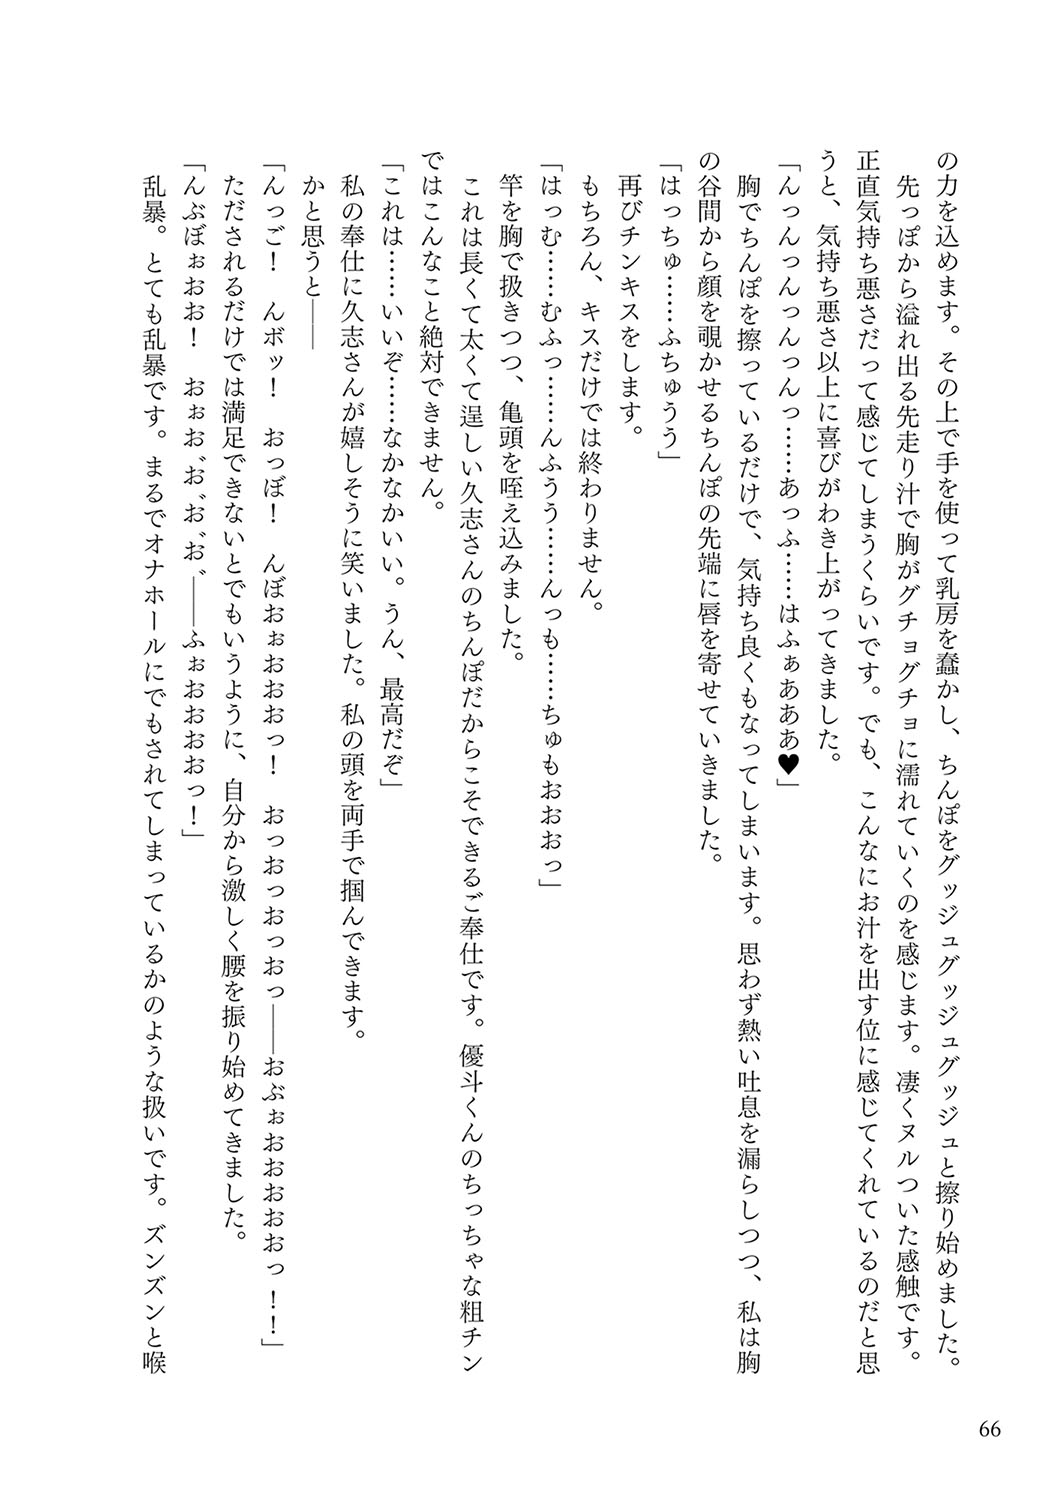 の力を込めます。その上で手を使って乳房を蠢かし、ちんぽをグッジュグッジュグッジュと擦り始めました。
先っぽから溢れ出る先走り汁で胸がグチョグチョに濡れていくのを感じます。凄くヌルついた感触です。
正直気持ち悪さだって感じてしまうくらいです。でも、こんなにお汁を出す位に感じてくれているのだと思
うと、気持ち悪さ以上に喜びがわき上がってきました。
「んっんっんっんっんっ……あっふ……はふぁあああ♥」
胸でちんぽを擦っているだけで、気持ち良くもなってしまいます。思わず熱い吐息を漏らしつつ、私は胸
の谷間から顔を覗かせるちんぽの先端に唇を寄せていきました。
「はっちゅ……ふちゅうう」
再びチンキスをします。
もちろん、キスだけでは終わりません。
「はっむ……むふっ……んふうう……んっも……ちゅもおおおっ」
竿を胸で扱きつつ、亀頭を咥え込みました。
これは長くて太くて逞しい久志さんのちんぽだからこそできるご奉仕です。優斗くんのちっちゃな粗チン
ではこんなこと絶対できません。
「これは……いいぞ……なかなかいい。うん、最高だぞ」
私の奉仕に久志さんが嬉しそうに笑いました。私の頭を両手で掴んできます。
かと思うと――
「んっご！　んボッ！　おっぼ！　んぼおぉおおおっ！　おっおっおっおっ――おぶぉおおおおおっ！！」
ただされるだけでは満足できないとでもいうように、自分から激しく腰を振り始めてきました。
「んぶぼぉおお！　おぉお゛お゛お゛お゛――ふぉおおおおっ！」
乱暴。とても乱暴です。まるでオナホールにでもされてしまっているかのような扱いです。ズンズンと喉
66